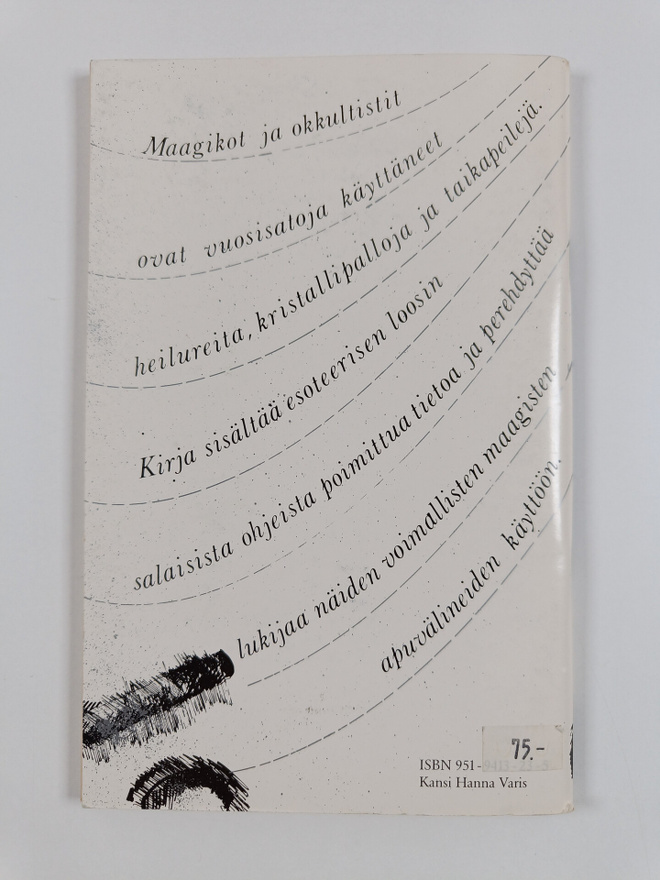 Maagikot ja okkultistit
ovat vuosisatoja käyttäneet
heilureita, kristallipalloja ja taikapeilejä.
Kirja sisältää esoteerisen loosin
salaisista ohjeista poimittua tietoa ja perehdyttää
lukijaa näiden voimallisten maagisten
apuvälineiden käyttöön.
75.-
ISBN 951-
Kansi Hanna Varis